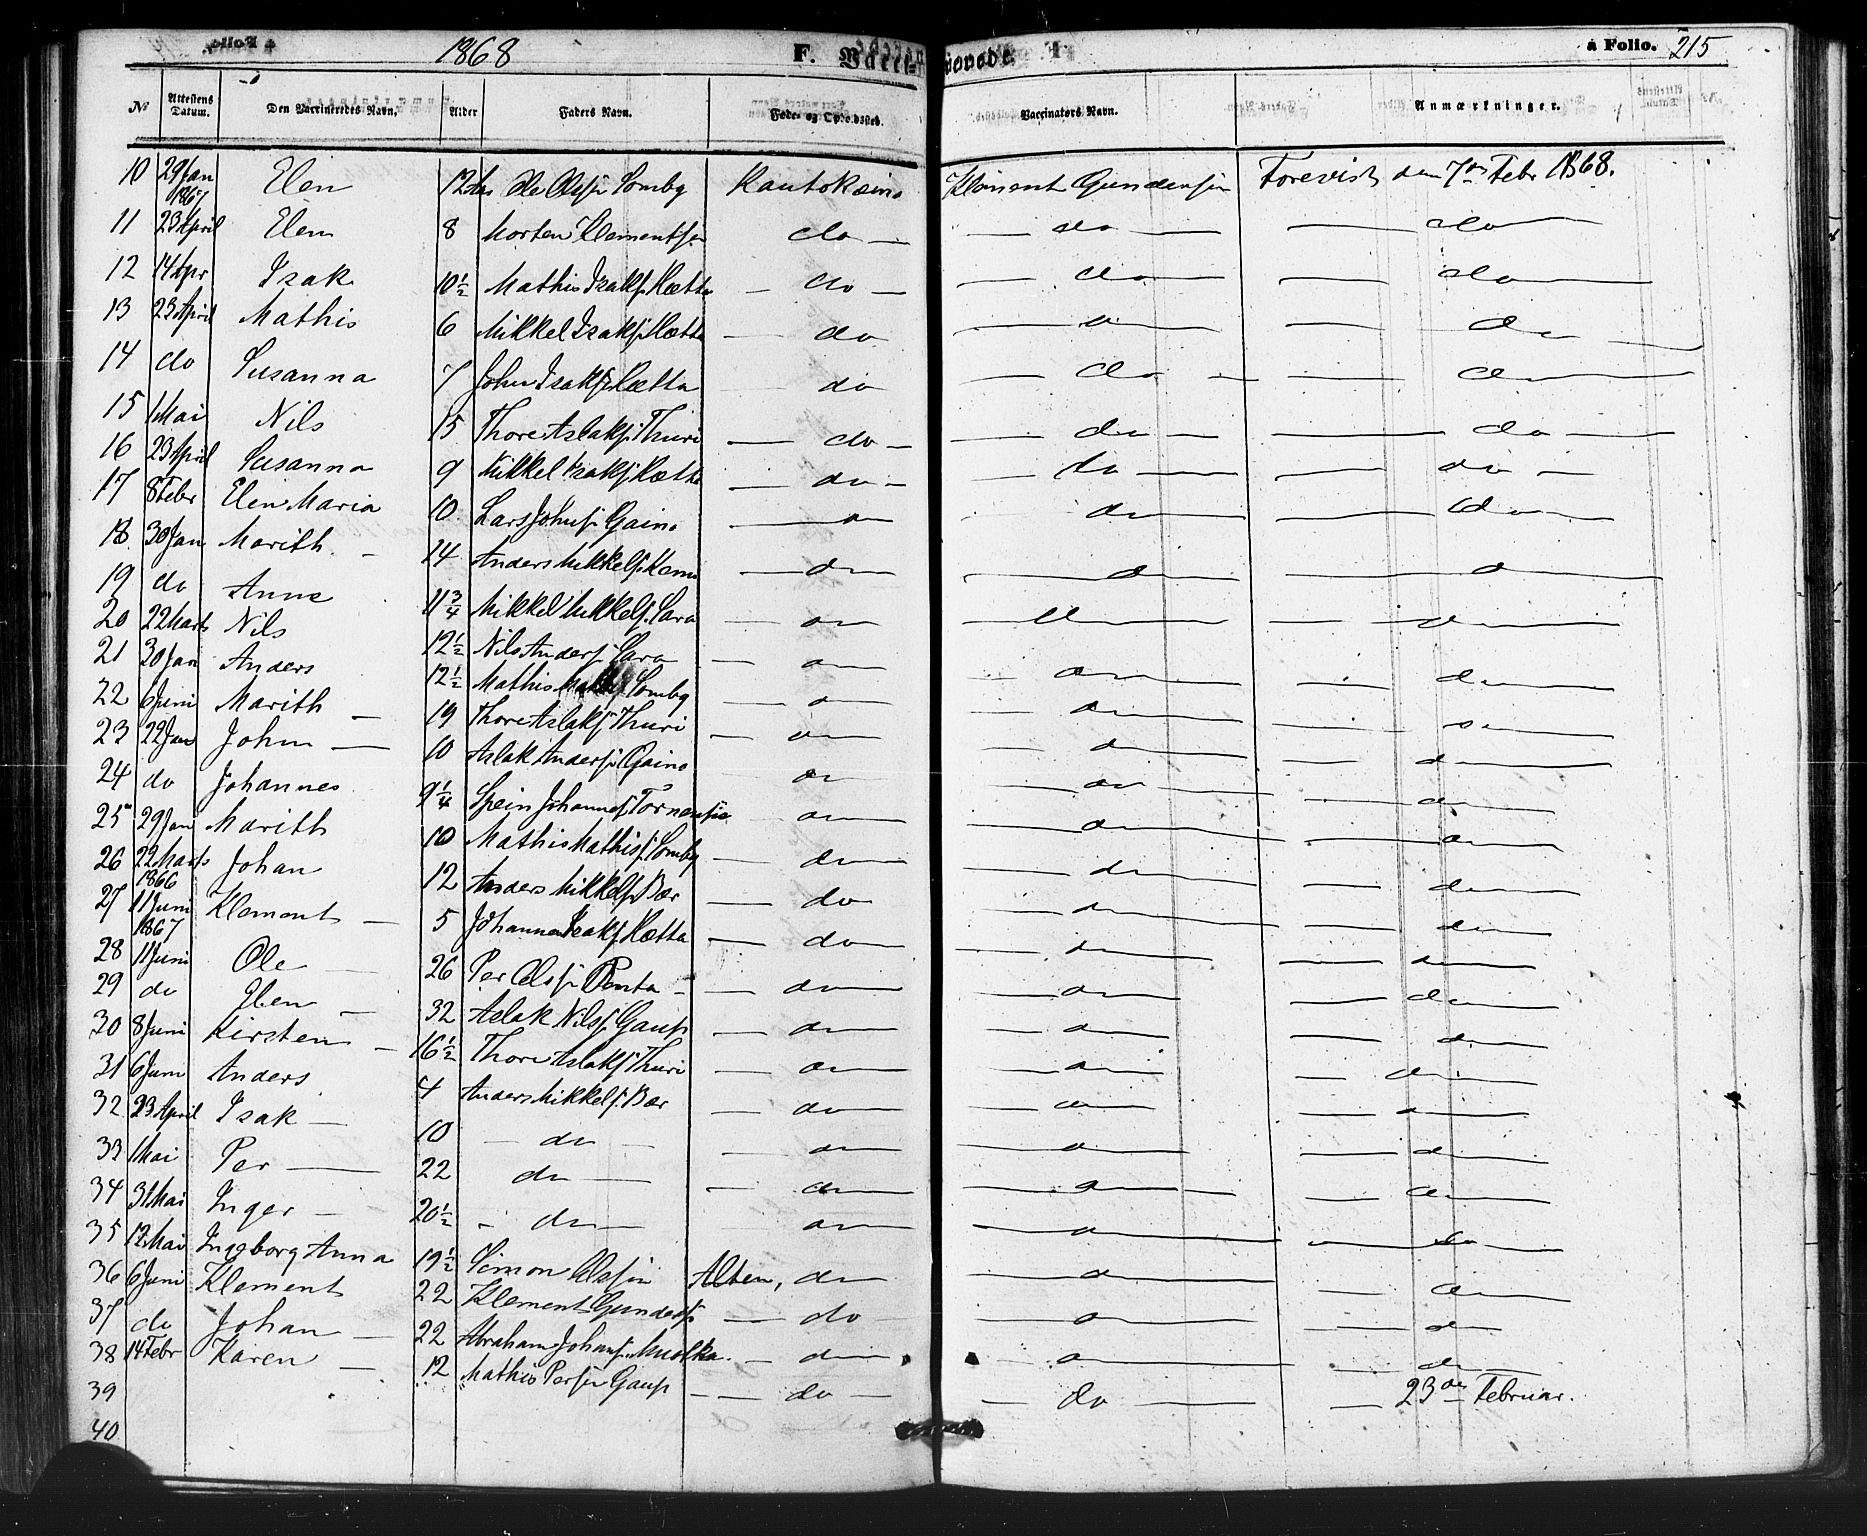 1868 F. Vacci- à Folio. 215
№ Attestens Datum. Den Vaccineredes Navn. Alder Faders Navn. Føde- og Opholdssted. Vaccinators Navn. Anmærkninger.
10 29 Jan 1867 Elen 12 Ole Olsen Somby Kautokeino Klement Gundersen Forevist den 7de Febr 1868.
11 23 April Elen 8 Morten Klementsen — do — — do — — do —
12 14 Apr Isak 10½ Mathis Isaks. Hætta — do — — do — — do —
13 23 April Mathis 6 Mikkel Isaks. Hætta — do — do — — do —
14 do Susanna 7 John Isaks. Hætta do — do — — do —
15 1 Mai Nils 15 Thore Aslaks. Thuri — do — — do — — do —
16 23 April Susanna 9 Mikkel Isaks. Hætta — do — — do — — do —
17 8 Febr Elen Maria 10 Lars Johns. Gaino — do — do — — do —
18 30 Jan Marith — 14 Anders Mikkels. — do — — do — — do —
19 do Anne 11¾ Mikkel Mikkels. Sara — do — do — — do —
20 22 Marts Nils 12½ Nils Anders. Sara — do — do — — do —
21 30 Jan Anders 12½ Mathis Somby — do — do — — do —
22 6 Juni Marith — 19 Thore Aslaks. Thuri — do — do — — do —
23 22 Jan John — 10 Aslak Anders. Gaino do — do — — do —
24 do Johannes 9¼ Spein Johannes. do — do — — do —
25 29 Jan Marith 10 Mathis Mathiss. Somby — do — do — — do —
26 22 Marts 1866 Johan 12 Anders Mikkels. Bær — do — do — — do —
27 11 Juni 1867 Klement — 5 Johannes Isaks. Hætta — do — do — — do —
28 11 Juni Ole — 26 Per Olsen — do — do — — do —
29 do Elen — 32 Aslak Nils. Gaup — do — do — — do —
30 8 Juni Kirsten — 16½ Thore Aslaks. Thuri — do — do — — do —
31 6 Juni Anders 4 Anders Mikkels. Bær — do — do — — do —
32 23 April Isak — 10 — do — — do — do — — do —
33 1 Mai Per — 22 do — — do — do — — do —
34 31 Mai Inger — 20½ - do — do — do — — do —
35 12 Mai Ingeborg Anna 19½ Simon Olsen Alten, do — do — — do —
36 6 Juni Klement 22 Klement Gunders. — do — — do — — do —
37 do Johan — 22 Abraham Johans. — do — do — — do —
38 14 Febr Karen — 12 Mathis Persen Gaup — do — — do — — 23de Februar.
39
40